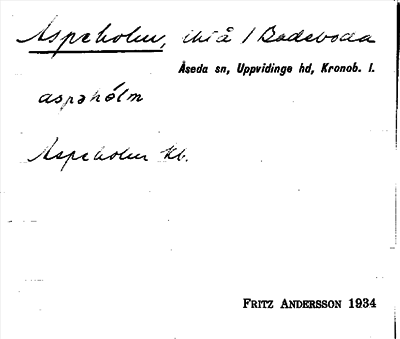 Aspeholm, i Badeboda
Åseda sn, Uppvidinge hd, Kronob. l.
aspəhólm
Aspeholm Kb.
FRITZ ANDERSSON 1934